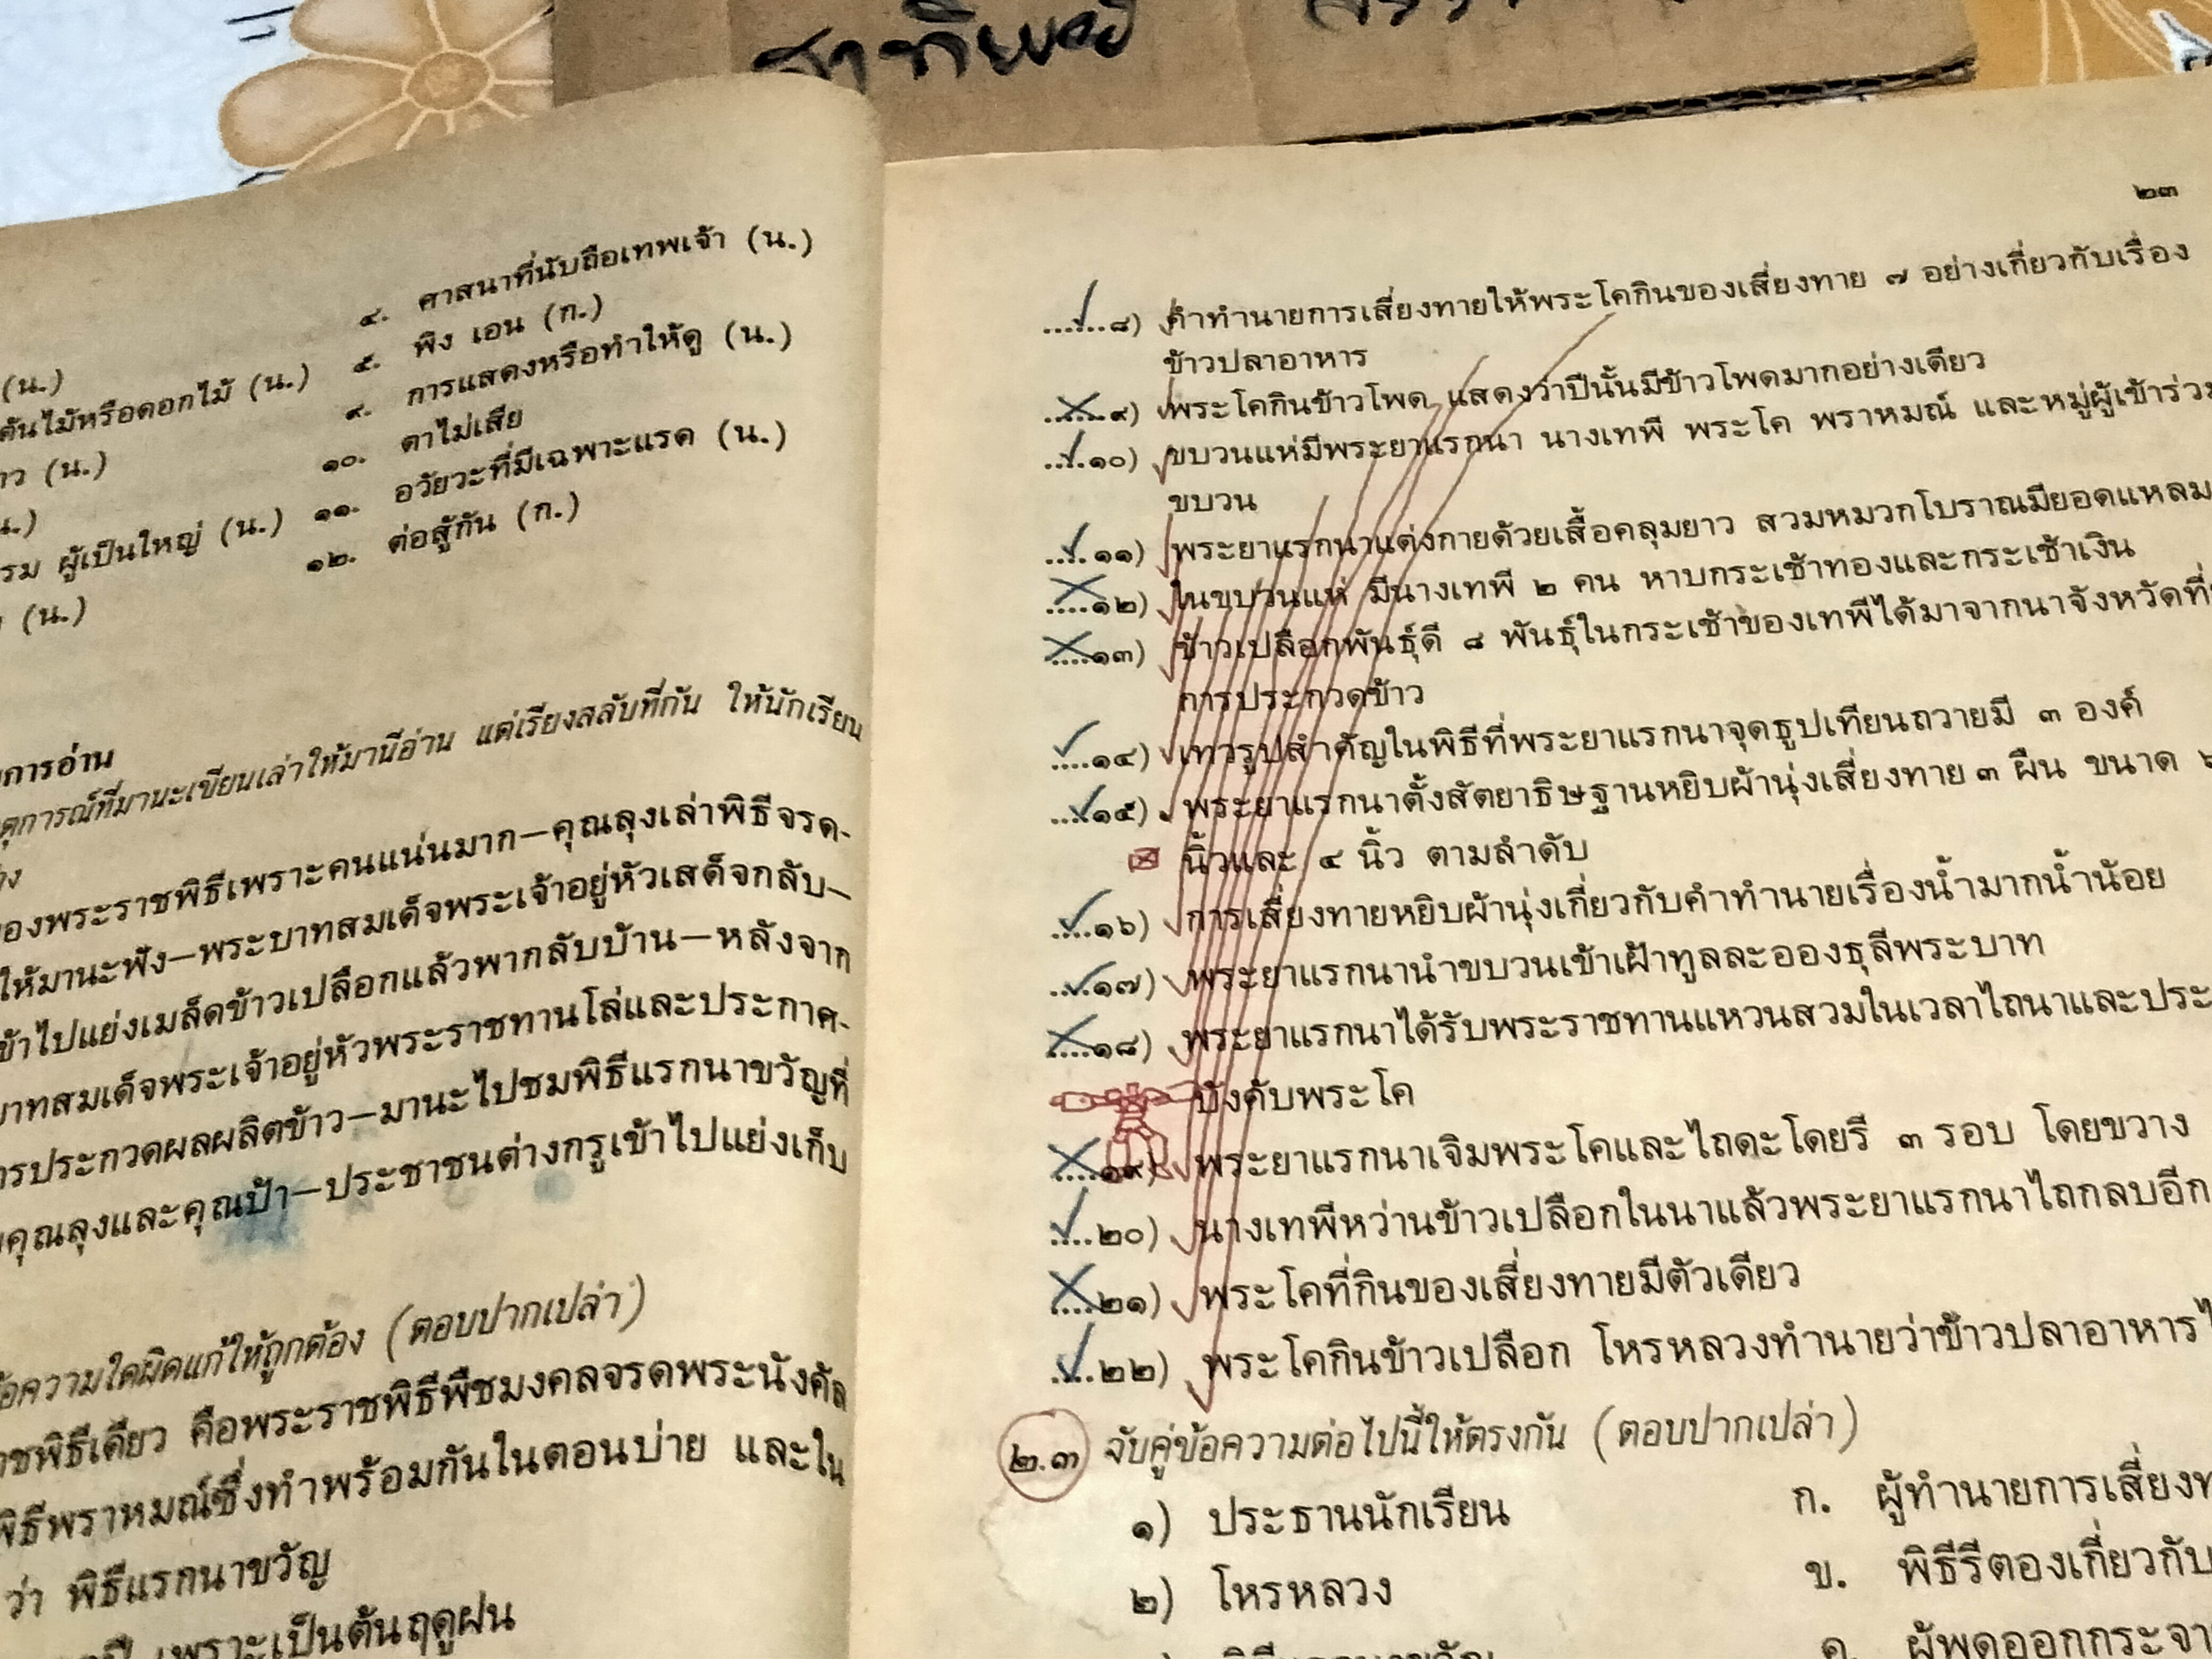 ๔. ศาสนาที่นับถือเทพเจ้า (น.)
(น.) ๕. พิง เอน (ก.)
ต้นไม้หรือดอกไม้ (น.) ๙. การแสดงหรือทำให้ดู (น.)
(น.) ๑๐. ตาไม่เสีย
ผู้เป็นใหญ่ (น.) ๑๑. อวัยวะที่มีเฉพาะแรด (น.)
(น.) ๑๒. ต่อสู้กัน (ก.)
การอ่าน
ที่มานะเขียนเล่าให้มานีอ่าน แต่เรียงสลับที่กัน ให้นักเรียน
ของพระราชพิธีเพราะคนแน่นมาก—คุณลุงเล่าพิธีจรด-
ให้มานะฟัง—พระบาทสมเด็จพระเจ้าอยู่หัวเสด็จกลับ—
เข้าไปแย่งเมล็ดข้าวเปลือกแล้วพากลับบ้าน—หลังจาก
บาทสมเด็จพระเจ้าอยู่หัวพระราชทานโล่และประกาศ-
การประกวดผลผลิตข้าว—มานะไปชมพิธีแรกนาขวัญที่
คุณลุงและคุณป้า—ประชาชนต่างกรูเข้าไปแย่งเก็บ
ข้อความใดผิดแก้ให้ถูกต้อง (ตอบปากเปล่า)
ราชพิธีเดียว คือพระราชพิธีพืชมงคลจรดพระนังคัล
พิธีพราหมณ์ซึ่งทำพร้อมกันในตอนบ่าย และใน
ว่า พิธีแรกนาขวัญ
เพราะเป็นต้นฤดูฝน
๒๓
......๘) คำทำนายการเสี่ยงทายให้พระโคกินของเสี่ยงทาย ๗ อย่างเกี่ยวกับเรื่อง
ข้าวปลาอาหาร
......๙) พระโคกินข้าวโพด แสดงว่าปีนั้นมีข้าวโพดมากอย่างเดียว
....๑๐) ขบวนแห่มีพระยาแรกนา นางเทพี พระโค พราหมณ์ และหมู่ผู้เข้าร่วม
ขบวน
....๑๑) พระยาแรกนาแต่งกายด้วยเสื้อคลุมยาว สวมหมวกโบราณมียอดแหลม
....๑๒) ในขบวนแห่ มีนางเทพี ๒ คน หาบกระเช้าทองและกระเช้าเงิน
....๑๓) ข้าวเปลือกพันธุ์ดี ๘ พันธุ์ในกระเช้าของเทพีได้มาจากนาจังหวัดที่
การประกวดข้าว
....๑๔) เทวรูปสำคัญในพิธีที่พระยาแรกนาจุดธูปเทียนถวายมี ๓ องค์
....๑๕) พระยาแรกนาตั้งสัตยาธิษฐานหยิบผ้านุ่งเสี่ยงทาย ๓ ผืน ขนาด
นิ้วและ ๔ นิ้ว ตามลำดับ
....๑๖) การเสี่ยงทายหยิบผ้านุ่งเกี่ยวกับคำทำนายเรื่องน้ำมากน้ำน้อย
....๑๗) พระยาแรกนานำขบวนเข้าเฝ้าทูลละอองธุลีพระบาท
....๑๘) พระยาแรกนาได้รับพระราชทานแหวนสวมในเวลาไถนาและประ
บังคับพระโค
....๑๙) พระยาแรกนาเจิมพระโคและไถดะโดยรี ๓ รอบ โดยขวาง
....๒๐) นางเทพีหว่านข้าวเปลือกในนาแล้วพระยาแรกนาไถกลบอีก
....๒๑) พระโคที่กินของเสี่ยงทายมีตัวเดียว
....๒๒) พระโคกินข้าวเปลือก โหรหลวงทำนายว่าข้าวปลาอาหาร
๒.๓ จับคู่ข้อความต่อไปนี้ให้ตรงกัน (ตอบปากเปล่า)
๑) ประธานนักเรียน ก. ผู้ทำนายการเสี่ยงท
๒) โหรหลวง ข. พิธีรีตองเกี่ยวกับ
ค. ผู้พูดออกกระจา